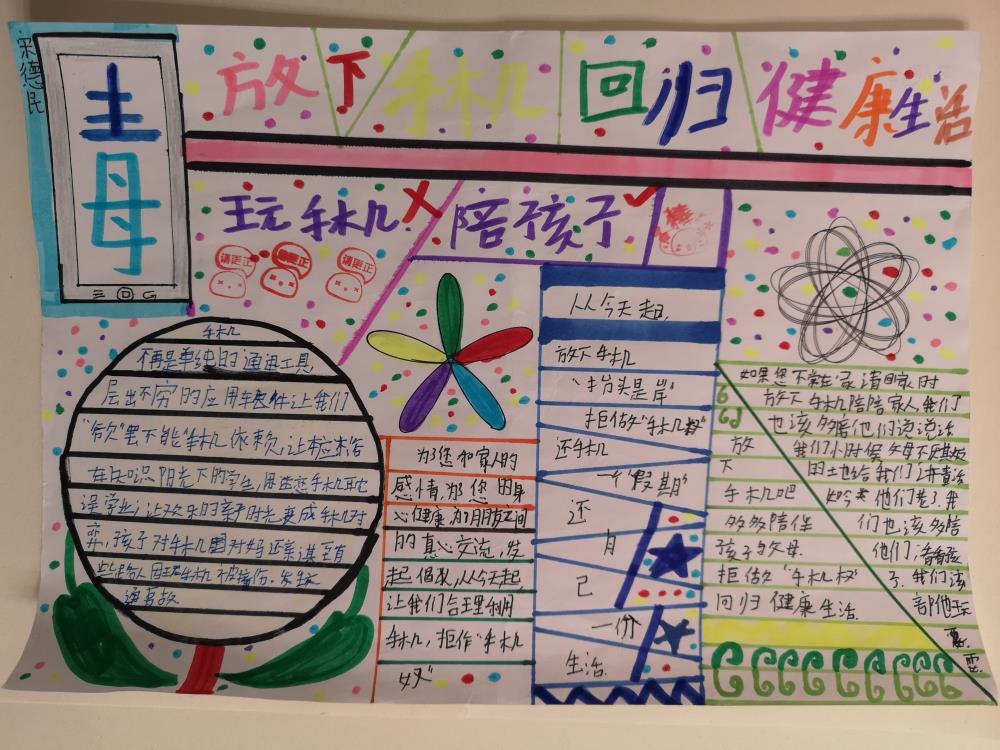 宋德民
毒
放下手机 回归健康生活
玩手机? 陪孩子
请更正
请更正
请更正
棒
手机
不再是单纯的通讯工具
层出不穷的应用软件让我们
"欲"罢不能"手机依赖,让本应沐浴
阳光下的学生,因迷恋手机耽
误学业;让欢乐的亲子时光变成手机对
弈,孩子对手机因对妈还亲
些路人因玩手机被撞伤,发生
交通事故
为了您和家人的
感情,为您的身
心健康,为朋友之间
的真心交流,发
起倡议,从今天起,
让我们合理利用
手机,拒作"手机
奴"
从今天起,
放下手机
"抬头是岸"
拒做"手机奴"
还手机
一个"假期"
还
自
己
一份
生活.
放
下
手机吧
多多陪伴
孩子与父母.
拒做"手机奴"
回归健康生活.
如果您不常在家请回家时
放下手机陪陪家人我们
也该多陪他们说说话
我们小时侯父母不厌其烦
的也给我们讲黄话
如今他们老了.我
们也该多陪
他们;看着孩
子.我们该
部他玩